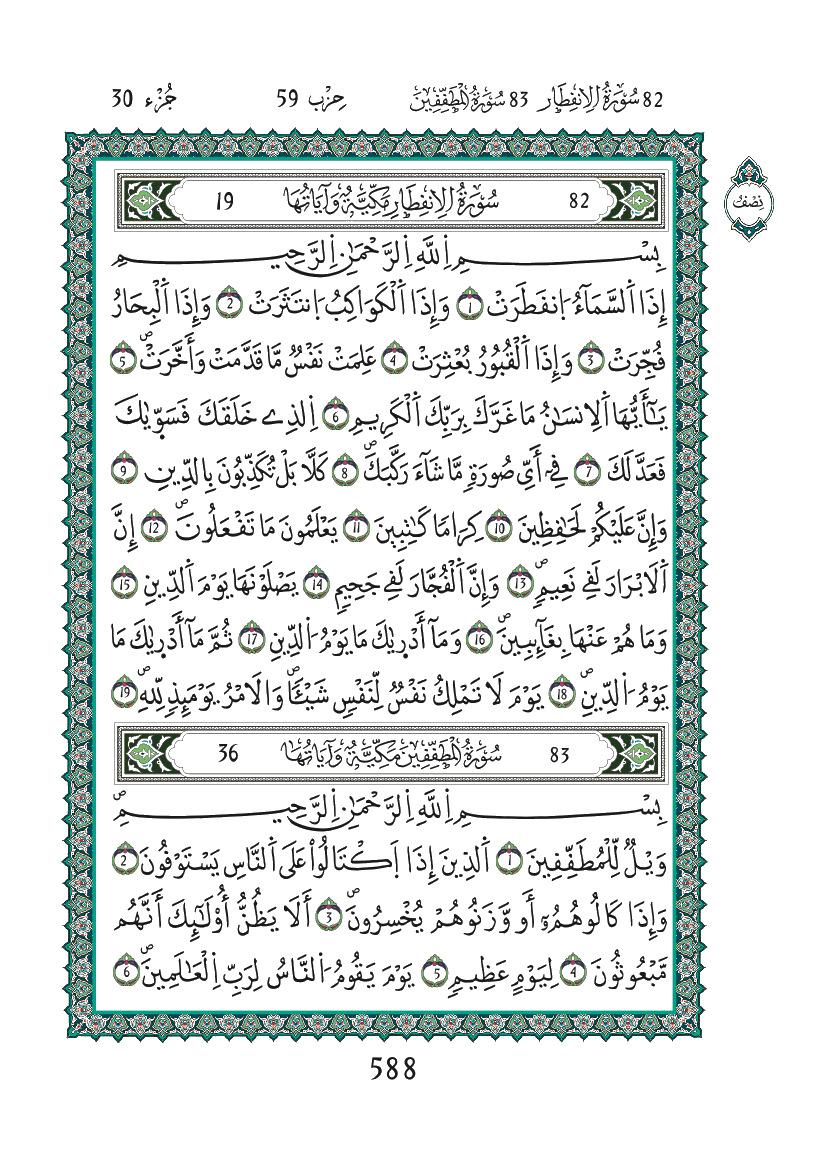 82 سُورَةُ الِانفِطَارِ 83 سُورَةُ المُطَفِّفِينَ حِزْب 59 جُزْء 30
نِصْفُ
82 سُورَةُ الِانفِطَارِ مَكِّيَّةٌ وَآيَاتُهَا 19
بِسْمِ اِ۬للَّهِ اِ۬لرَّحْمَٰنِ اِ۬لرَّحِيمِ
إِذَا اَ۬لسَّمَآءُ اُ۪نفَطَرَتْ 1 وَإِذَا اَ۬لْكَوَاكِبُ اُ۪نتَثَرَتْ 2 وَإِذَا اَ۬لْبِحَارُ
فُجِّرَتْ 3 وَإِذَا اَ۬لْقُبُورُ بُعْثِرَتْ 4 عَلِمَتْ نَفْسٌ مَّا قَدَّمَتْ وَأَخَّرَتْ 5
يَـٰٓأَيُّهَا اَ۬لِانسَٰنُ مَا غَرَّكَ بِرَبِّكَ اَ۬لْكَرِيمِ 6 اِ۬لذِے خَلَقَكَ فَسَوّ۪يٰكَ
فَعَدَّلَكَ 7 فِےٓ أَيِّ صُورَةٍ مَّا شَآءَ رَكَّبَكَ 8 كَلَّا بَلْ تُكَذِّبُونَ بِالدِّينِ 9
وَإِنَّ عَلَيْكُمْ لَحَٰفِظِينَ 10 كِرَاماً كَٰتِبِينَ 11 يَعْلَمُونَ مَا تَفْعَلُونَ 12 إِنَّ
اَ۬لَابْرَارَ لَفِے نَعِيمٍ 13 وَإِنَّ اَ۬لْفُجَّارَ لَفِے جَحِيمٍ 14 يَصْلَوْنَهَا يَوْمَ اَ۬لدِّينِ 15
وَمَا هُمْ عَنْهَا بِغَآئِبِينَ 16 وَمَآ أَدْر۪يٰكَ مَا يَوْمُ اُ۬لدِّينِ 17 ثُمَّ مَآ أَدْر۪يٰكَ مَا
يَوْمُ اُ۬لدِّينِ 18 يَوْمَ لَا تَمْلِكُ نَفْسٌ لِّنَفْسٍ شَيْـٔاً وَالَامْرُ يَوْمَئِذٍ لِّلهِ 19
83 سُورَةُ المُطَفِّفِينَ مَكِّيَّةٌ وَآيَاتُهَا 36
بِسْمِ اِ۬للَّهِ اِ۬لرَّحْمَٰنِ اِ۬لرَّحِيمِ
وَيْلٌ لِّلْمُطَفِّفِينَ 1 اَ۬لذِينَ إِذَا اَ۪كْتَالُواْ عَلَى اَ۬لنَّاسِ يَسْتَوْفُونَ 2
وَإِذَا كَالُوهُمُۥٓ أَو وَّزَنُوهُمْ يُخْسِرُونَ 3 أَلَا يَظُنُّ أُوْلَٰٓئِكَ أَنَّهُم
مَّبْعُوثُونَ 4 لِيَوْمٍ عَظِيمٍ 5 يَوْمَ يَقُومُ اُ۬لنَّاسُ لِرَبِّ اِ۬لْعَٰلَمِينَ 6
588